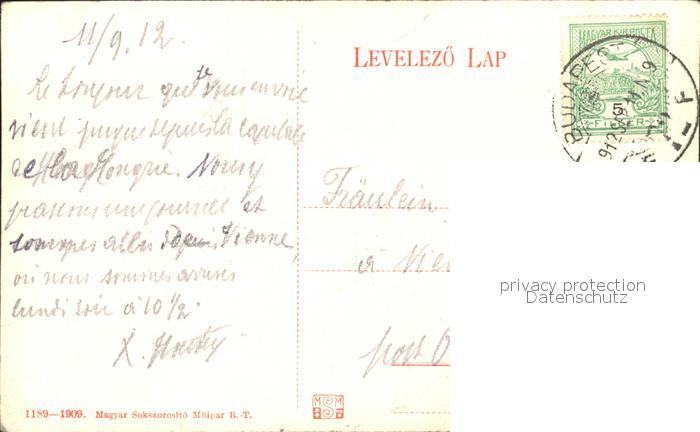 11/9.12.
LEVELEZŐ LAP
MAGYAR KIR. POSTA
5
FILLÉR
BUDAPEST
912
Le bonjour que te envoie
vient jusque depuis la capitale
de Hongrie. Nous y
passons une journée et
sommes allés Vienne,
où nous sommes arrivés
lundi soir à 10 1/2.
X.
Fräulein
à
post
privacy protection
Datenschutz
MSM
1189—1909. Magyar Sokszorosító Műipar R.-T.